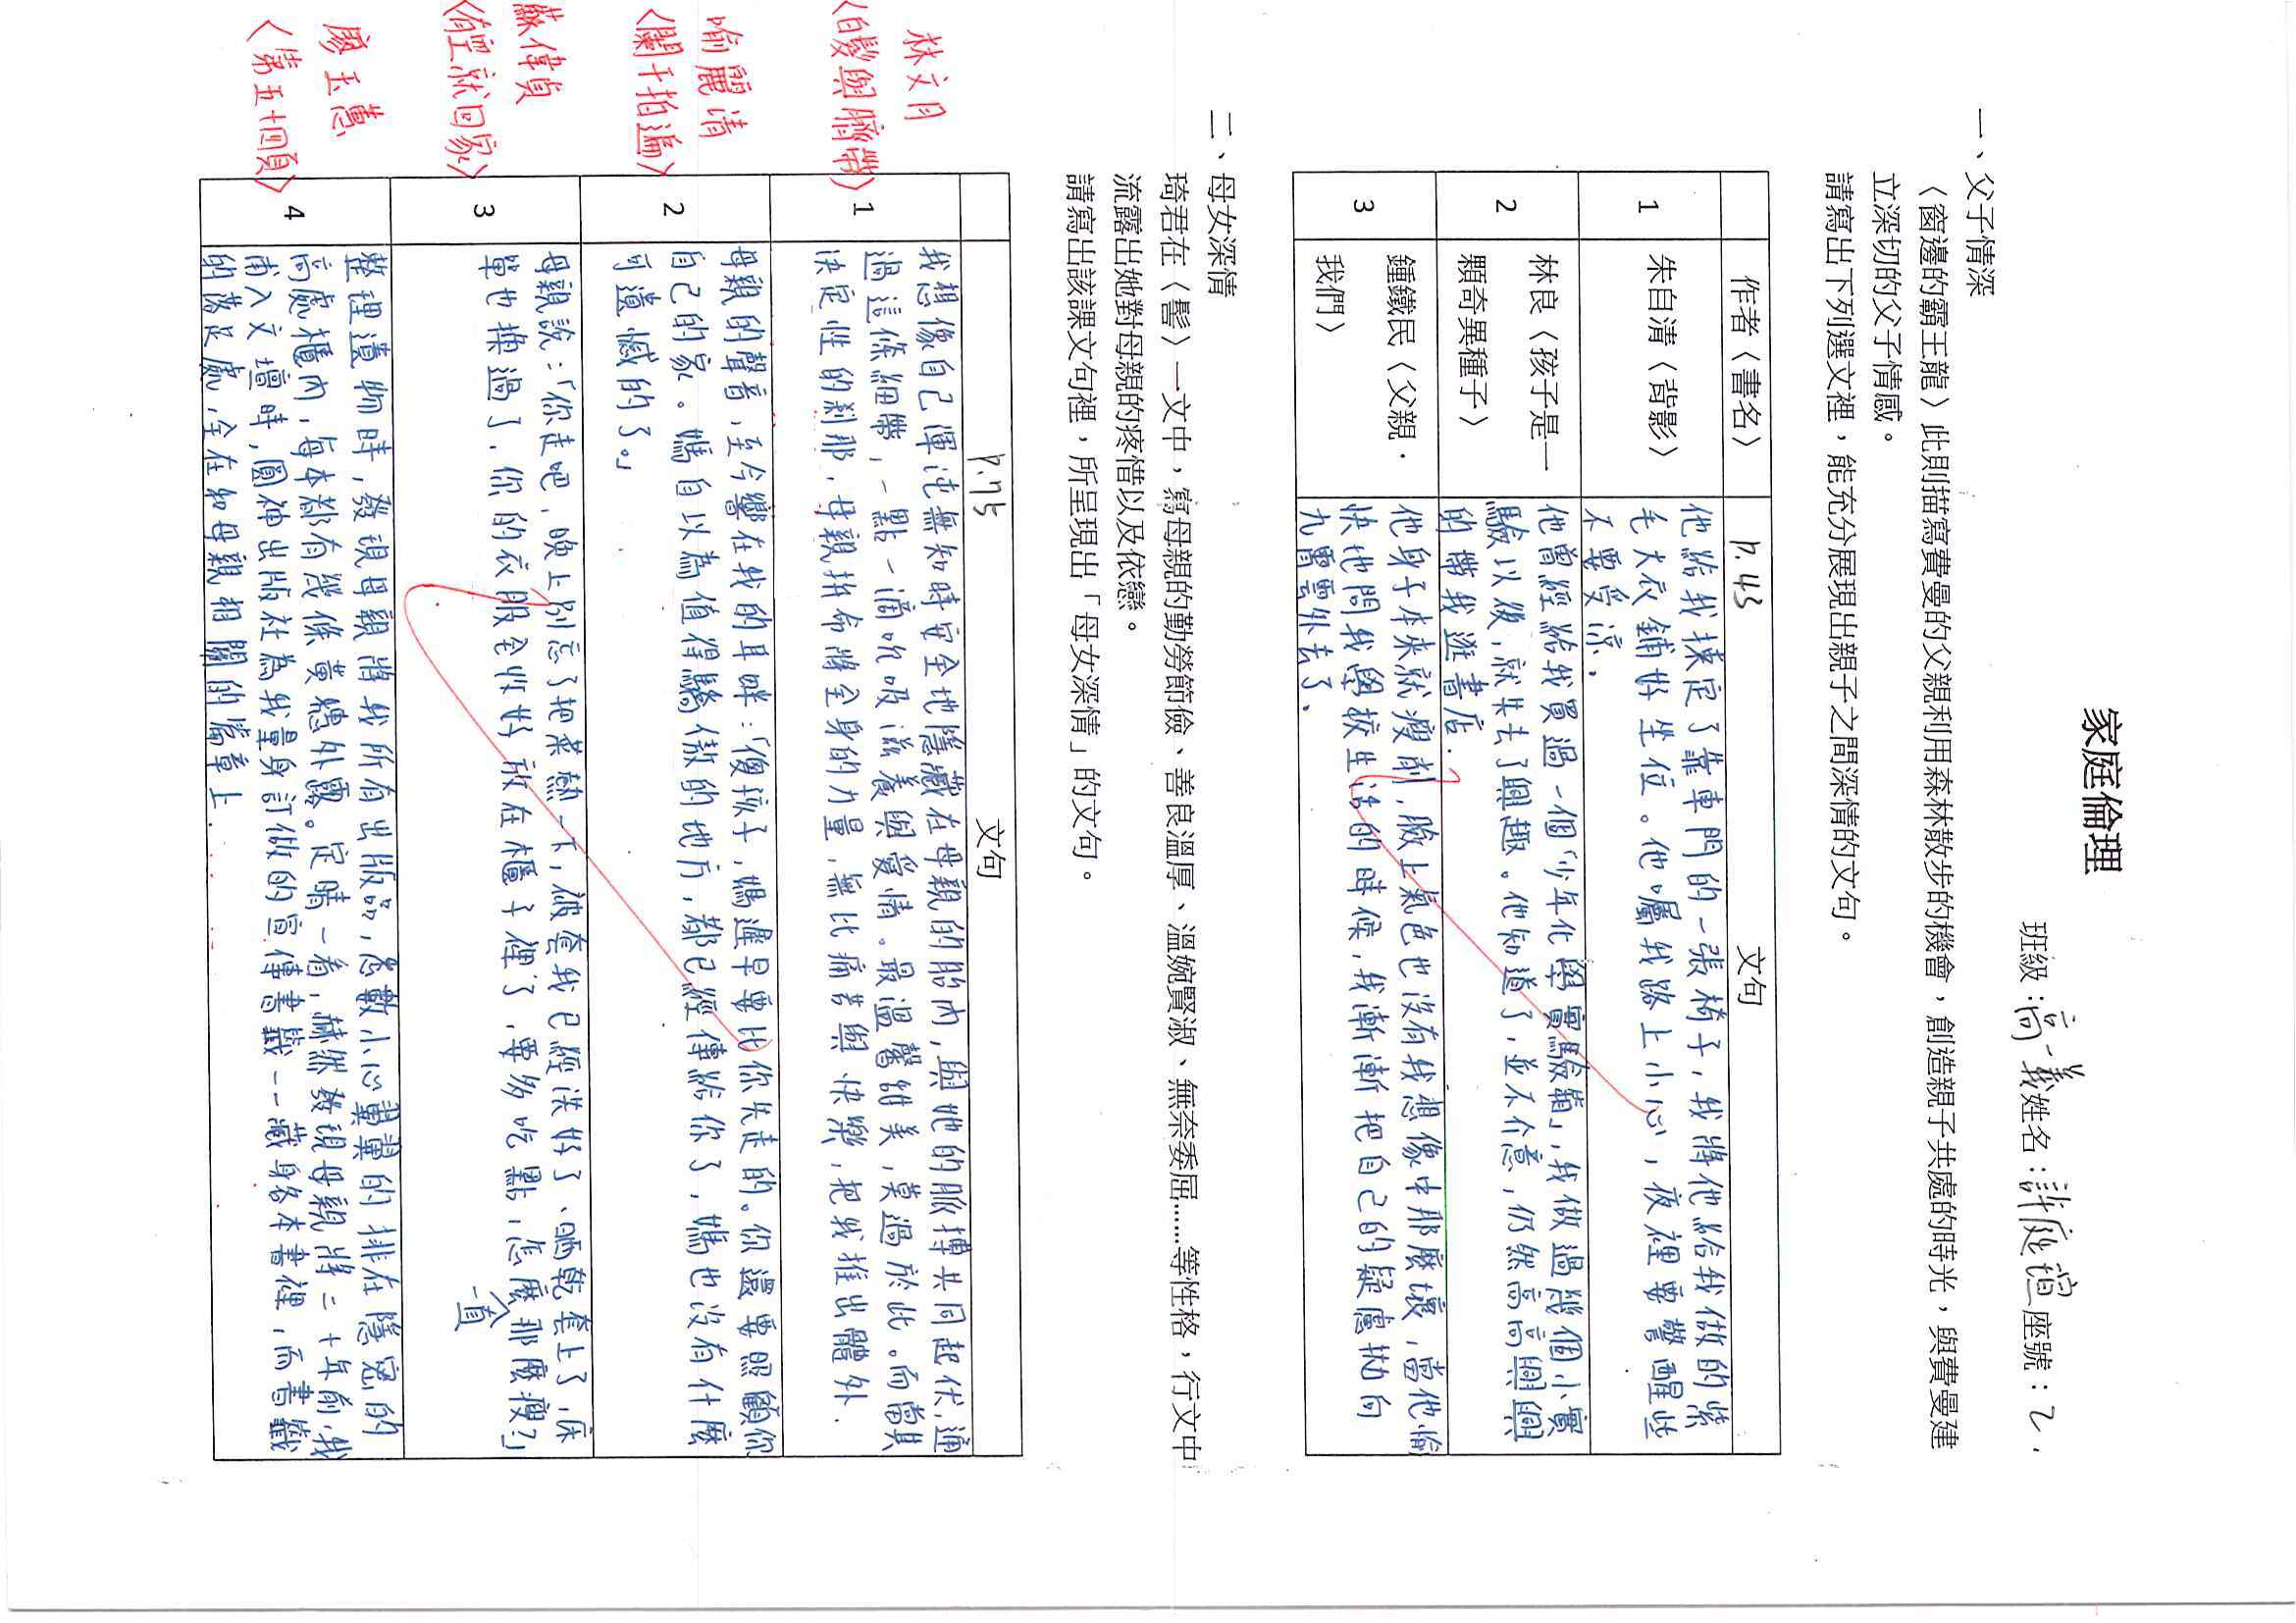 家庭倫理
班級：高一義姓名：許庭瑄座號：2.
一、父子情深
〈窗邊的霸王龍〉此則描寫費曼的父親利用森林散步的機會，創造親子共處的時光，與費曼建
立深切的父子情感。
請寫出下列選文裡，能充分展現出親子之間深情的文句。
作者〈書名〉
p.43
文句
1
朱自清〈背影〉
他給我揀定了靠車門的一張椅子，我將他給我做的紫
毛大衣鋪好坐位。他囑我路上小心，夜裡要警醒些
不要受涼.
2
林良〈孩子是一
顆奇異種子〉
他曾經給我買過一個「少年化學實驗箱」，我做過幾個小實
驗以後，就失去了興趣。他知道了，並不介意，仍然高高興興
的帶我逛書店.
3
鍾鐵民〈父親‧
我們〉
他身子本來就瘦削，臉上氣色也沒有我想像中那麼壞，當他愉
快地問我學校生活的時候，我漸漸把自己的疑慮拋向
九霄雲外去了.
二、母女深情
琦君在〈髻〉一文中，寫母親的勤勞節儉、善良溫厚、溫婉賢淑、無奈委屈……等性格，行文中
流露出她對母親的疼惜以及依戀。
請寫出該課文句裡，所呈現出「母女深情」的文句。
p.75
文句
林文月
〈白髮與臍帶〉
1
我想像自己渾沌無知時安全地隱藏在母親的胎內，與她的脈搏共同起伏，通
過這條細帶，一點一滴吮吸滋養與愛情。最溫馨甜美，莫過於此。而當其
決定性的剎那，母親拚命將全身的力量，無比痛苦與快樂，把我推出體外.
喻麗清
〈闌干拍遍〉
2
母親的聲音，至今響在我的耳畔：「傻孩子，媽遲早要比你先走的。你還要照顧你
自己的家。媽自以為值得驕傲的地方，都已經傳給你了，媽也沒有什麼
可遺憾的了。」
蘇偉貞
〈有空就回家〉
3
母親說：「你走吧，晚上別忘了把菜熱一下，被套我已經洗好了、晒乾套上了，床
單也換過了，你的衣服全收好放在櫃子裡了，要多吃點，怎麼一直那麼瘦？」
廖玉蕙
〈第五十四頁〉
4
整理遺物時，發現母親將我所有出版品，悉數小心翼翼的排在隱密的
高處櫃內，每本都有幾條黃穗外露。定睛一看，赫然發現母親將二十年前，我
甫入文壇時，圓神出版社為我量身訂做的宣傳書籤一一藏身各本書裡，而書籤
的落足處，全在和母親相關的篇章上.